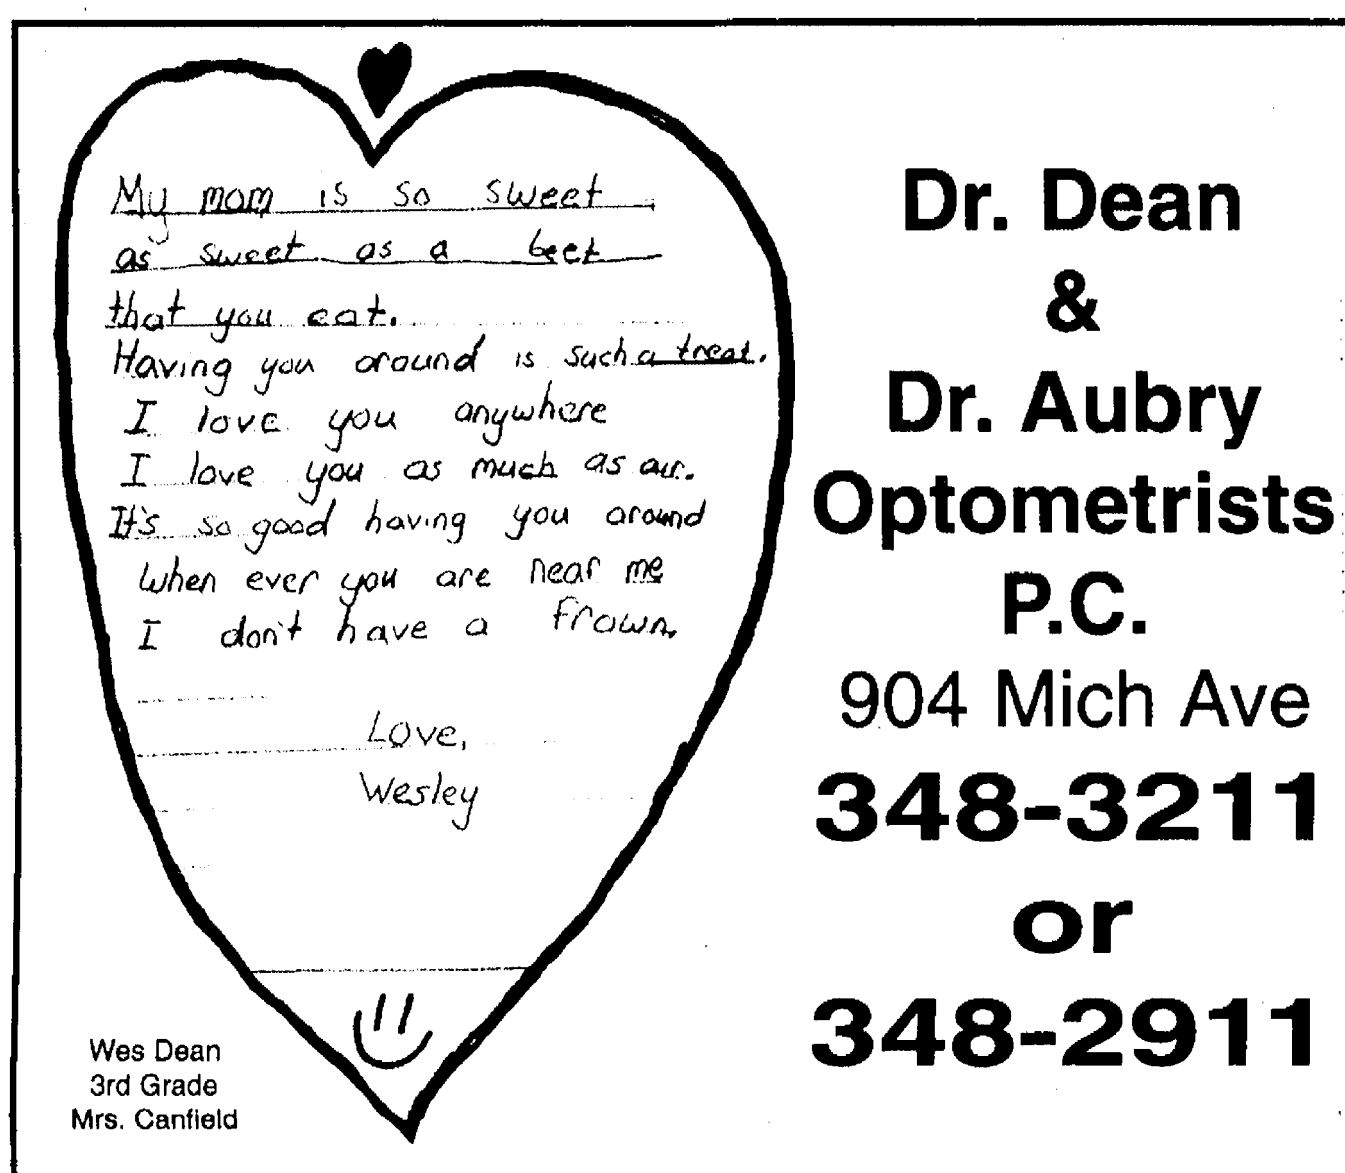 My mom is so sweet
as sweet as a beet
that you eat.
Having you around is such a treat.
I love you anywhere
I love you as much as air.
It's so good having you around
When ever you are near me
I don't have a frown.
Love,
Wesley
Wes Dean
3rd Grade
Mrs. Canfield
Dr. Dean
&
Dr. Aubry
Optometrists
P.C.
904 Mich Ave
348-3211
or
348-2911